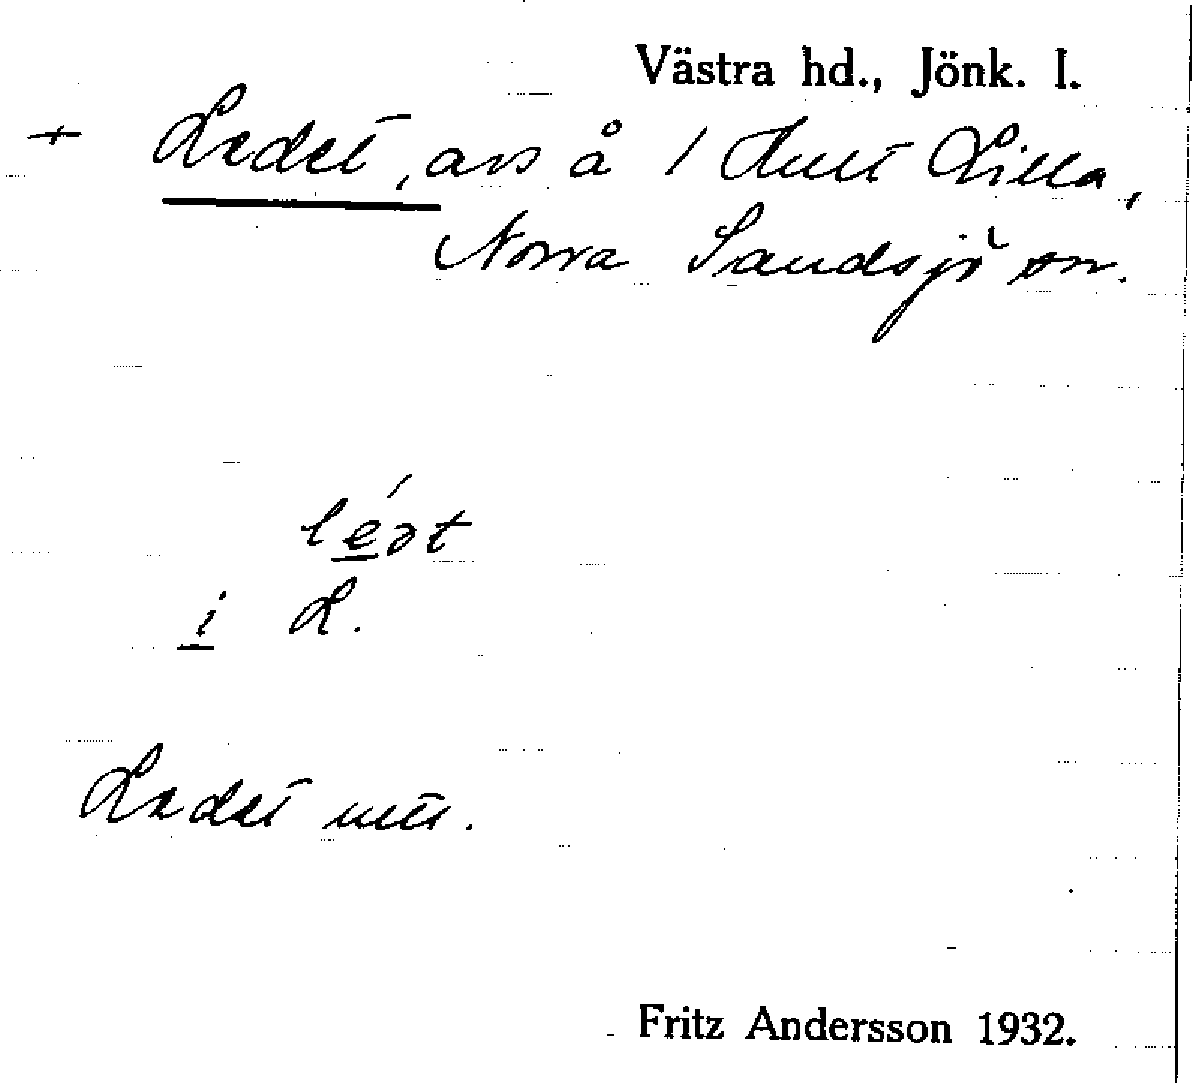 Västra hd., Jönk. l.
+ Ledet, avs å 1 Hult Lilla,
Norra Sandsjö sn.
léət
i L.
Ledet
Fritz Andersson 1932.